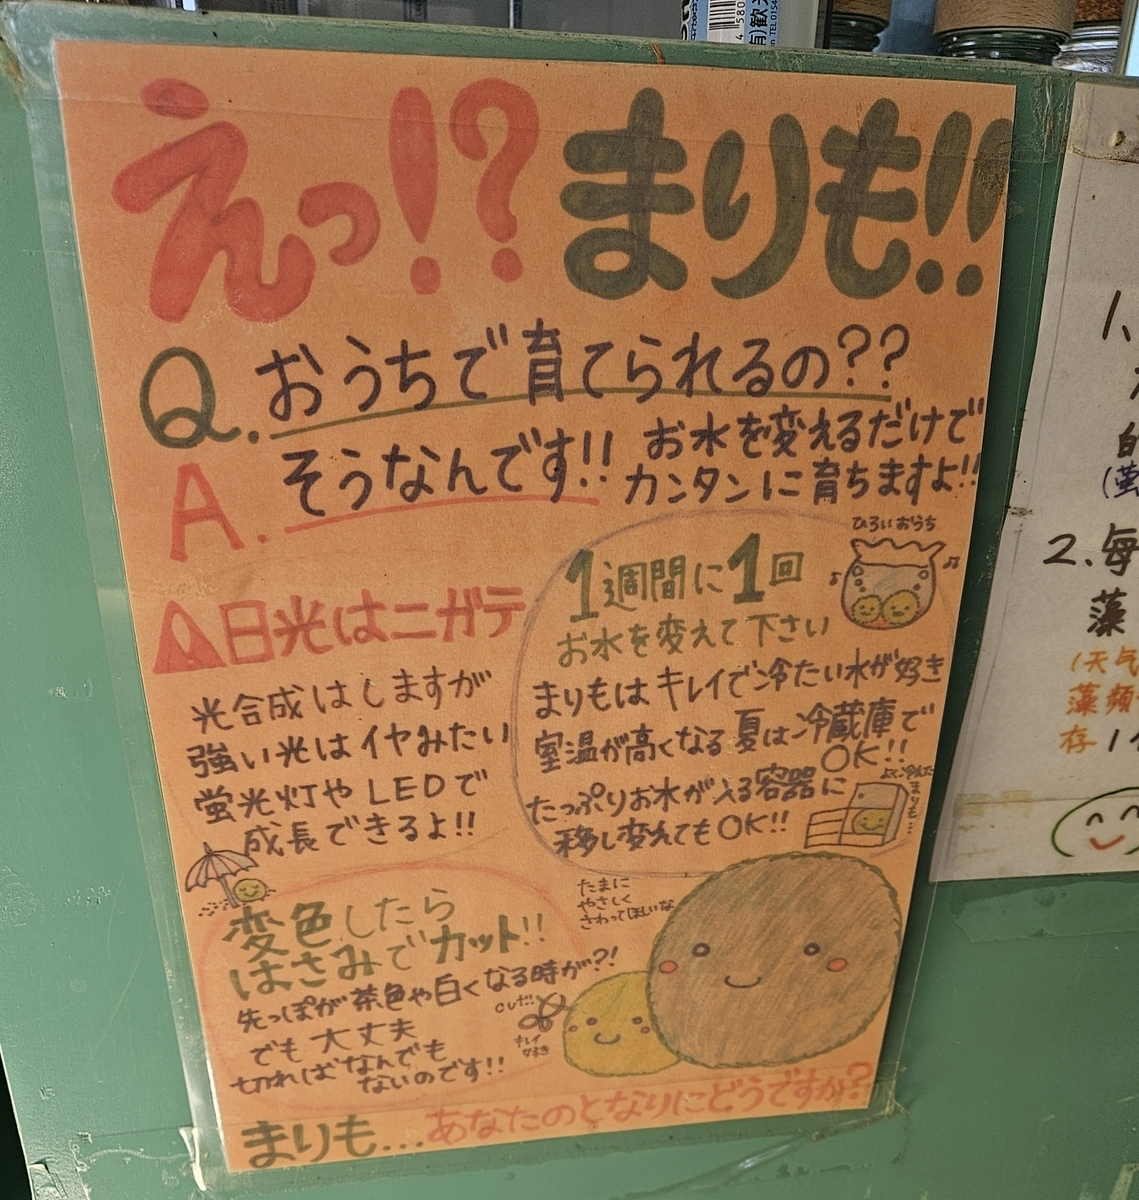 えっ!? まりも!!
Q. おうちで育てられるの??
A. そうなんです!! お水を変えるだけで
カンタンに育ちますよ!!
日光はニガテ
光合成はしますが
強い光はイヤみたい
蛍光灯や LEDで
成長できるよ!!
ひろいおうち
1週間に1回
お水を変えて下さい
まりもは キレイで冷たい水が好き
室温が高くなる夏は冷蔵庫で
OK!!
たっぷりお水が入る容器に
移し変えてもOK!!
まりも...
変色したら
はさみでカット!!
先っぽが茶色や白くなる時が?!
でも大丈夫
切ればなんでも
ないのです!!
cut!!
キレイ
好き
たまに
やさしく
さわってほしいな
まりも...あなたのとなりにどうですか?
1、
2. 毎
藻
(天気
藻類
存